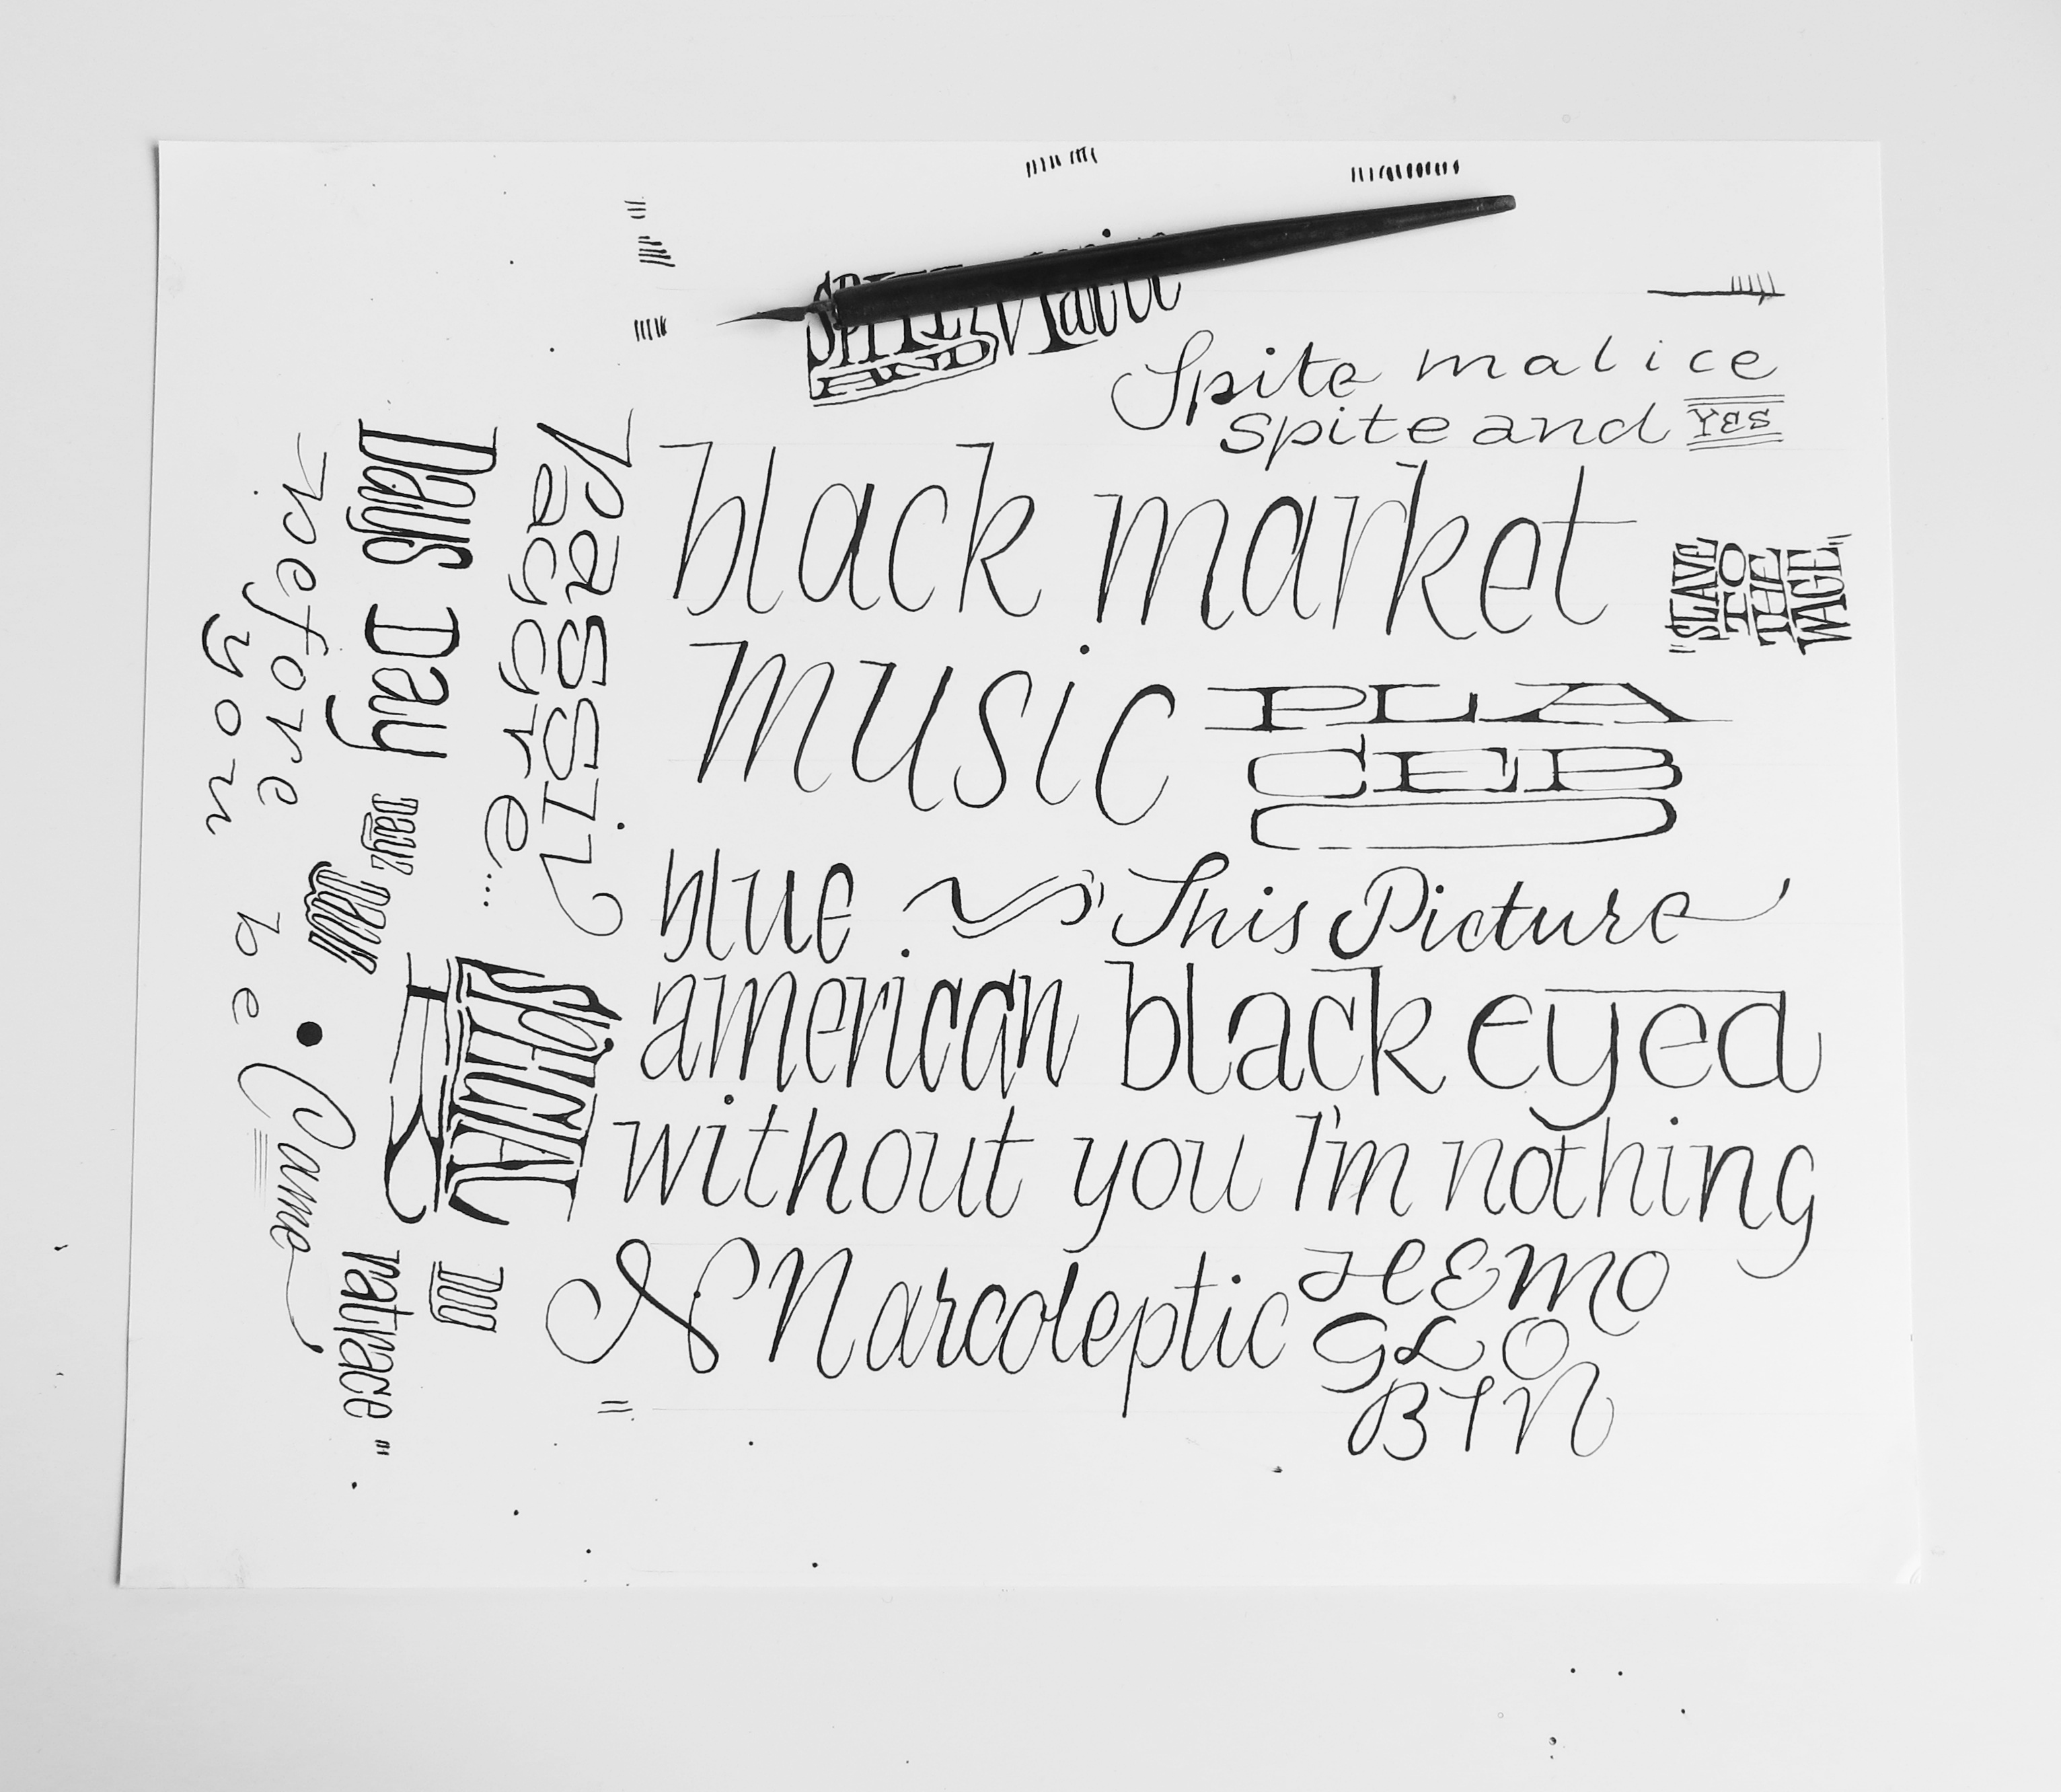 SPITE Malice
AND
Spite malice
spite and YES
black market
"SLAVE
TO
THE
WAGE"
music
PLA
CEB
O
blue
This Picture
american black eyed
without you I'm nothing
N Narcoleptic
HEMO
GLO
BIN
Passiv
aggr
e...
Days
Day
Dayz
before
you
be
Came
SPECIAL
K